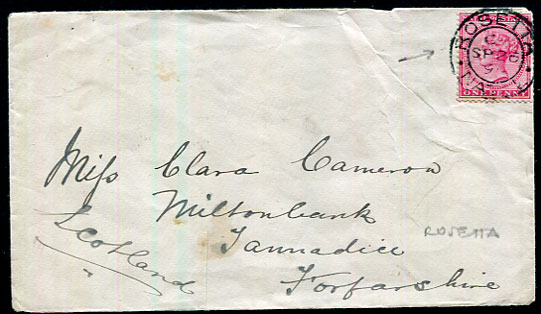 ROSETTA
SP 26
NATAL
ONE PENNY
Miss Clara Cameron
Miltonbank
Tannadice
Forfarshire
Scotland
ROSETTA